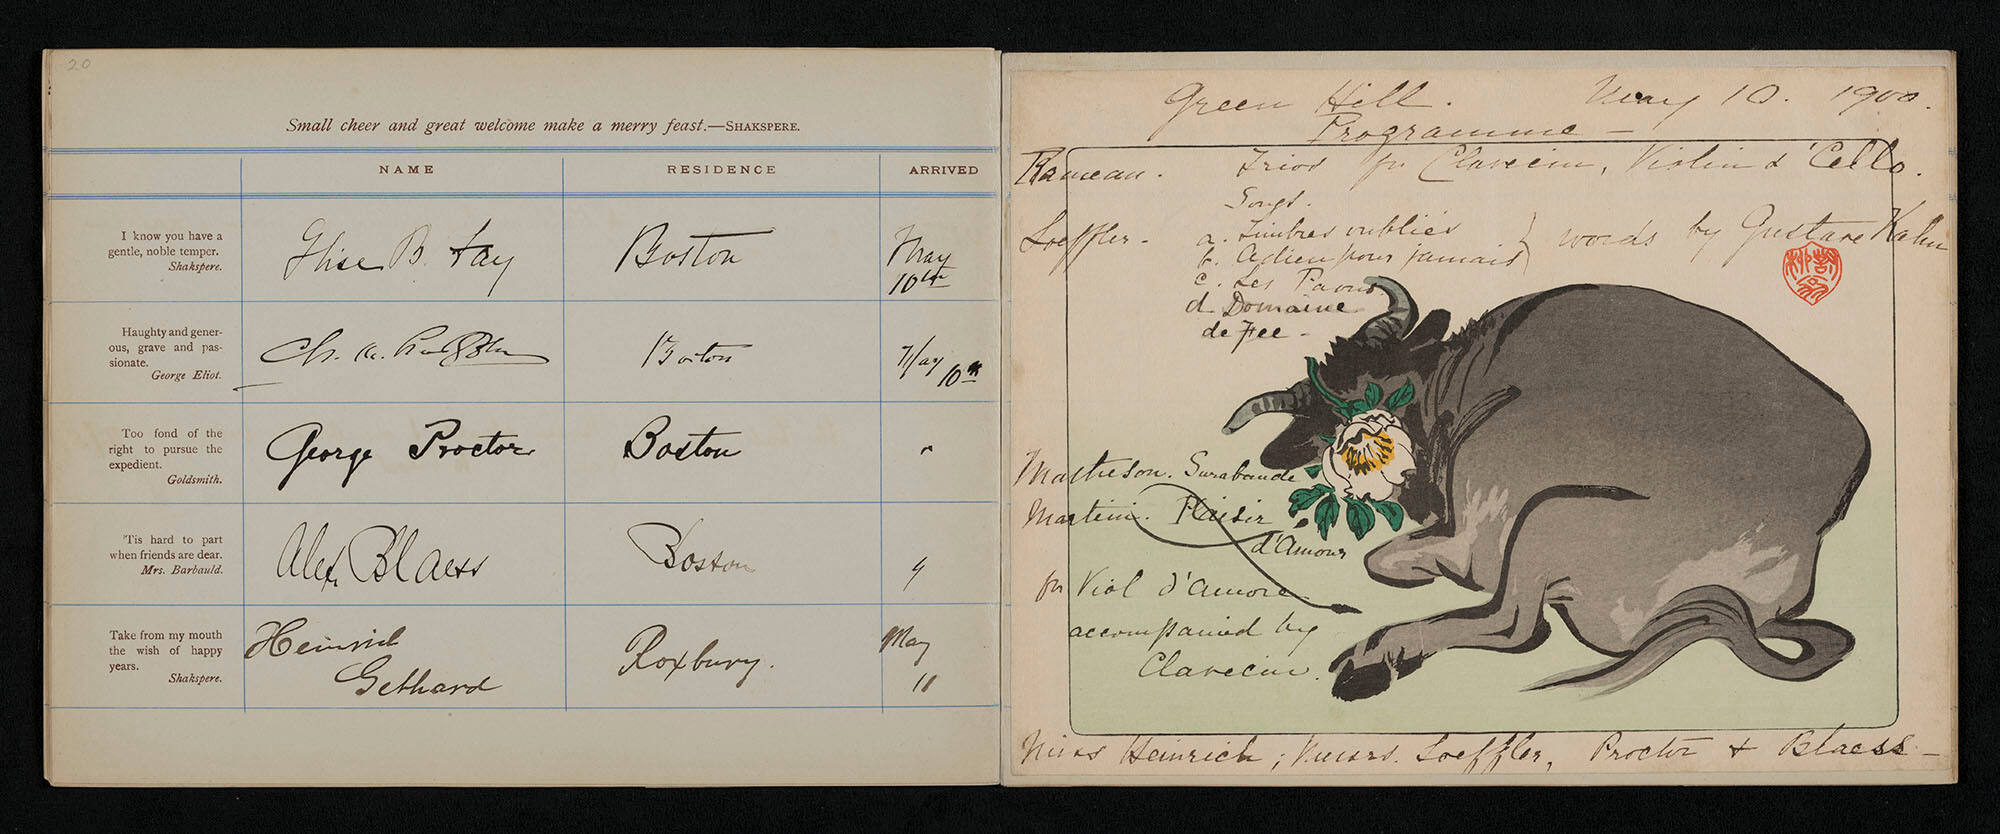 20
Small cheer and great welcome make a merry feast.—SHAKSPERE.
NAME RESIDENCE ARRIVED
I know you have a
gentle, noble temper.
Shakspere.
Elise B. Fay Boston May
10th
Haughty and gener-
ous, grave and pas-
sionate.
George Eliot.
Ch. M. Boston May
10th
Too fond of the
right to pursue the
expedient.
Goldsmith.
George Proctor Boston "
'Tis hard to part
when friends are dear.
Mrs. Barbauld.
Alex Blaess Boston "
Take from my mouth
the wish of happy
years.
Shakspere.
Heinrich
Gebhard
Roxbury. May
11
Green Hill. May 10. 1900.
Programme –
Rameau. Trios for Clavecin, Violin & 'Cello.
Songs.
Loeffler – a. Timbres oubliés
b. Adieu pour jamais } words by Gustave Kahn
c. Les Paons
d Domaine
de Fee –
Matheson. Sarabande
Martini. Plaisir
d'Amour
for Viol d'amore
accompanied by
Clavecin.
Miss Heinrich; Messrs. Loeffler, Proctor & Blaess –